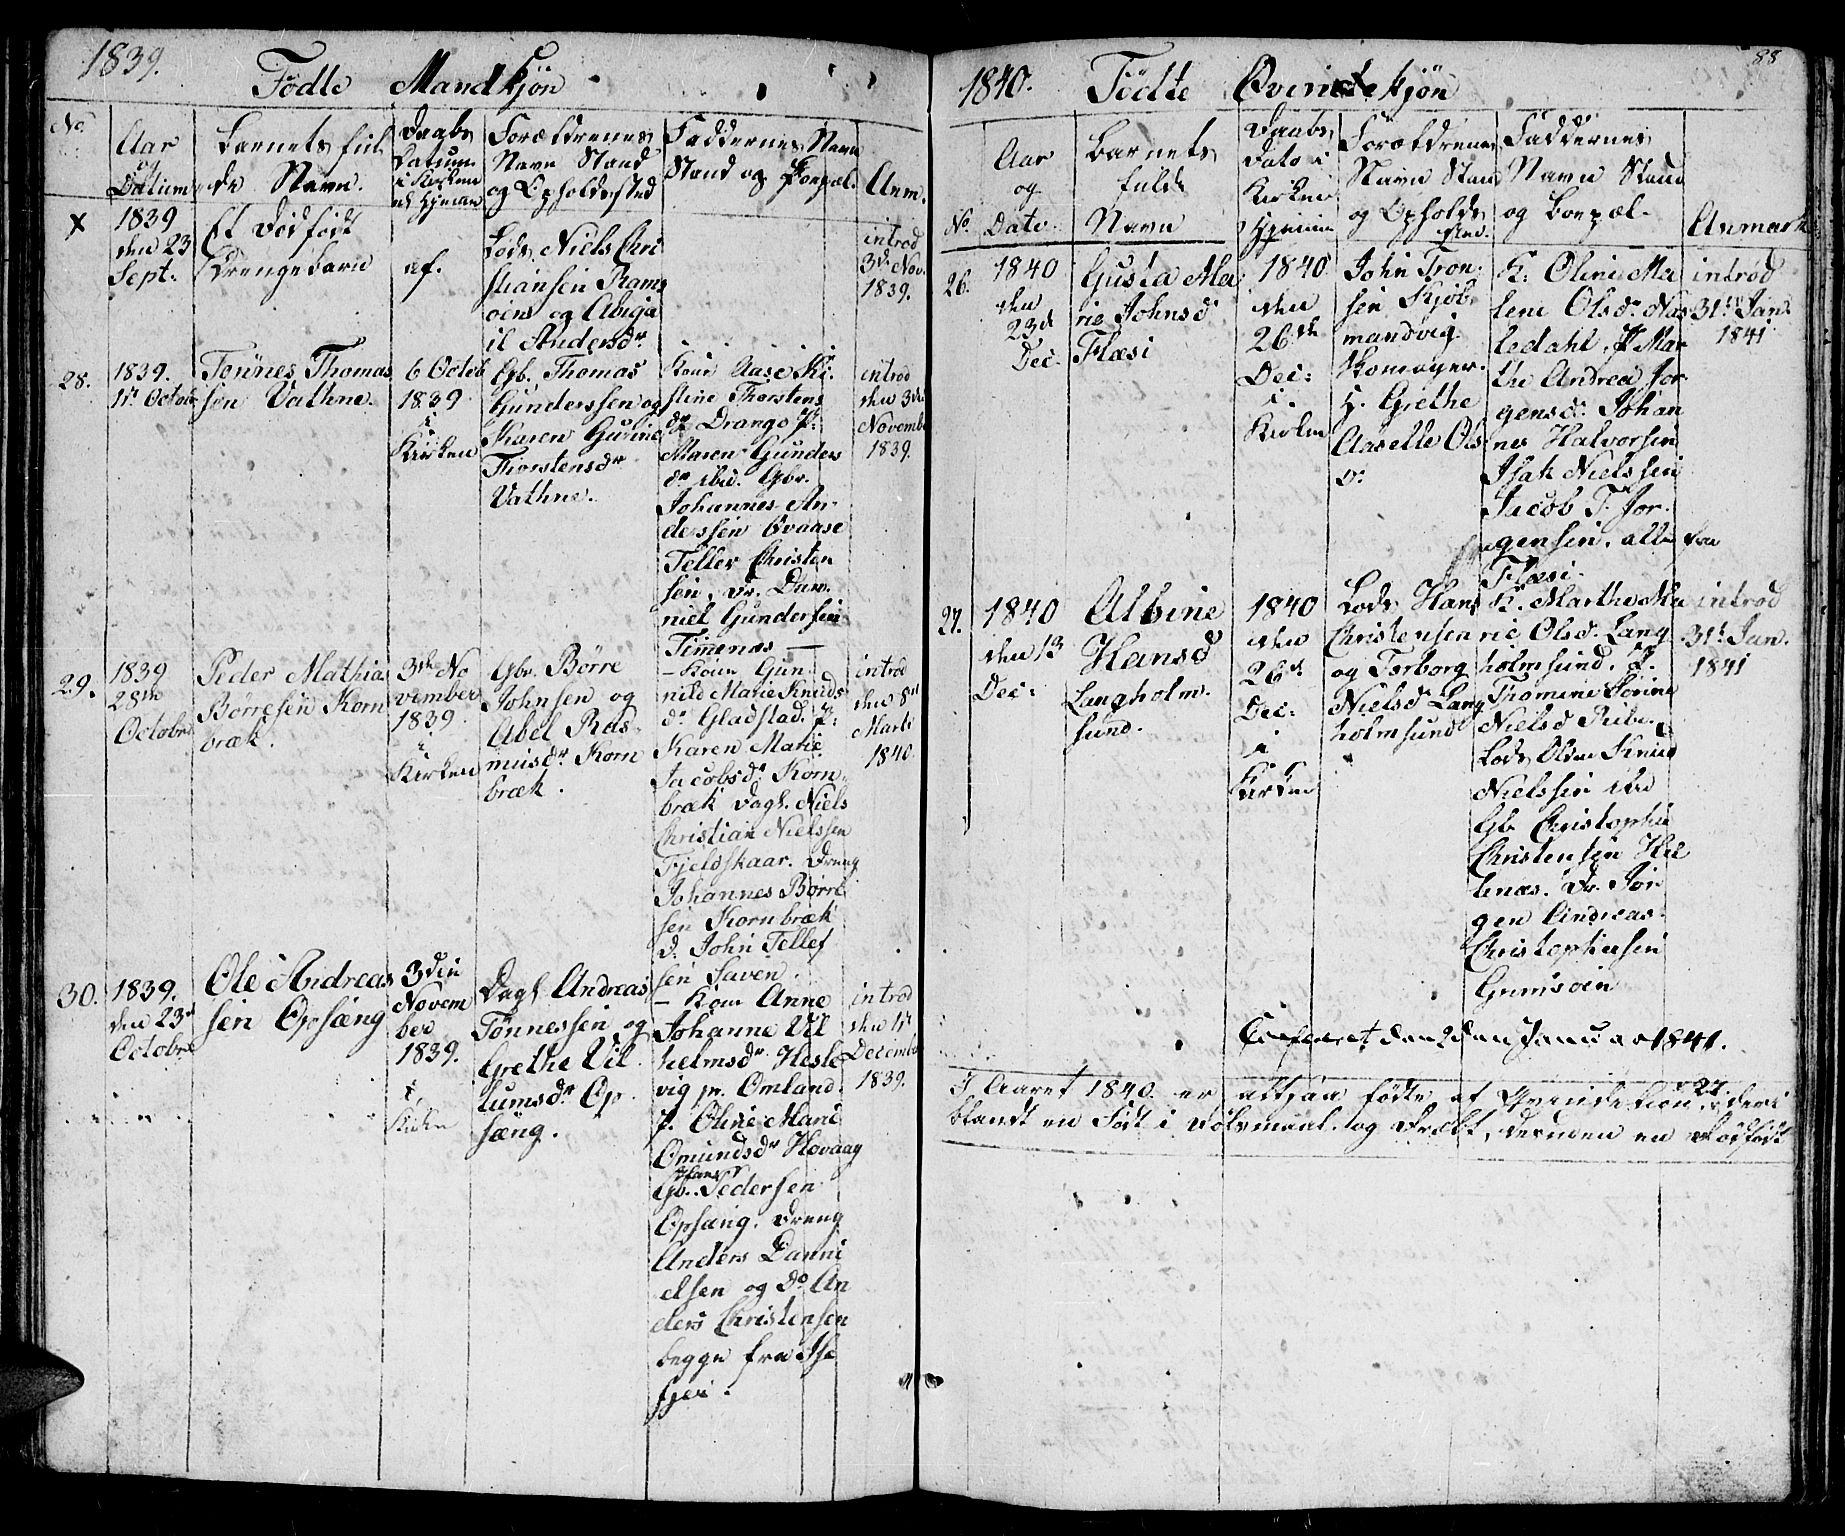 1839.
Fødte Mandkjøn
No.
Aar
og
Datum
Barnets ful
de Navn.
Daabs
Datum
i Kirken
el. Hjemme
Forældrenes
Navn Stand
og Opholdssted
Faddernes Navn
Stand og Bopæl.
Anm.
X
1839
den 23
Sept.
Et dødfødt
Drengebarn
af.
Lods Niels Chri
stiansen Ram
oens og Abiga
il Andersdr
introd
3de Nov.
1839.
28.
1839.
11t Octobr
Tønnes Thomas
sen Vathne.
6 Octob
1839
i
Kirken
Gb. Thomas
Gunderssen og
Karen Gurine
Thorstensdr
Vathne.
Kone Aase Ki
stine Thorstens
dr Drange P:
Maren Gunders
dr ibid. Gbr.
Johannes An-
derssen Qvaase
Tellev Christen
sen, Dr. Dan-
niel Gundersen
Timenæs —
introd
den 3de
Novemb
1839.
29.
1839
28de
Octobr
Peder Mathias
Børresen Korn
bræk.
3de No
vember
1839.
i
Kirken
Gbr. Børre
Johnsen og
Abel Ras-
musdr Korn
bræk.
– Kone Gun-
nild Marie Knuds
dr Gladstad. P:
Karen Marie
Jacobsdr Korn
bræk Dagl. Niels
Christian Nielssen
Fjeldskaar. Dreng
Johannes Børre
sen Kornbræk
D. John Tellef
sen Saven.
introd
den 8de
Marts
1840.
30.
1839.
den 23d
Octobr
Ole Andreas
sen Opsæng
3die
Novem
ber
1839.
i
Kirken
Dagl Andreas
Tønnessen og
Grethe Vil
lumsdr Op
sæng.
– Kone Anne
Johanne Vil
helmsdr Hesle
vig pr. Omland.
P. Oline Marie
Omundsdr Hovaag
Hans
Gb. Pedersen
Opsæng. Dreng
Anders Danni
elsen og Do An
ders Christensen
begge fra

1840. Fødte Qvindekjøn
88
No.
Aar
og
Dato
Barnets
fulde
Navn
Daabs
Dato i
Kirken
Hjemme
Forældrenes
Navn Stand
og Opholds
sted.
Faddernes
Navn Stand
og Bopæl.
Anmærk
26.
1840
den
23d
Dec.
Gusta Ma
rie Johnsd
Flæsi
1840
den
26de
Dec:
i
Kirken
John Tron-
sen Kjøb-
mandvig
Skomager.
H. Grethe
Aaselle Ols
d.
K. Oline Ma
lene Olsdr Aas
ledahl, P Mar
the Andrea Jor
gensdr Johan
nes Halvorsen
Isak Nielssen
Jacob T. Jor-
gensen, alle fra
Flæsi.
introd
31te Jan.
1841
27.
1840
den 13
Dec:
Albine
Hansd
Langholm-
sund.
1840
den
26de
Dec:
i
Kirken
Lods Hans
Christensen
og Torborg
Nielsd Lang
holmsund
K. Marthe Ma
rie Olsd. Lang
holmsund. P.
Thomine Torine
Nielsd Ribe.
Lods Olden Knud
Nielssen ibd
Gb Christopher
Christensen Hel
lenæs. Dr. Jør
gen Andreas
Christophersen
Grimsoen
introd
31te Jan.
1841
Confereret den 2den Januar 1841.
I Aaret 1840. er altsaa fødte af Qvindekjøn 27. deri
blandt en født i Dølsmaal. og Dræbt, desuden en dødfødt